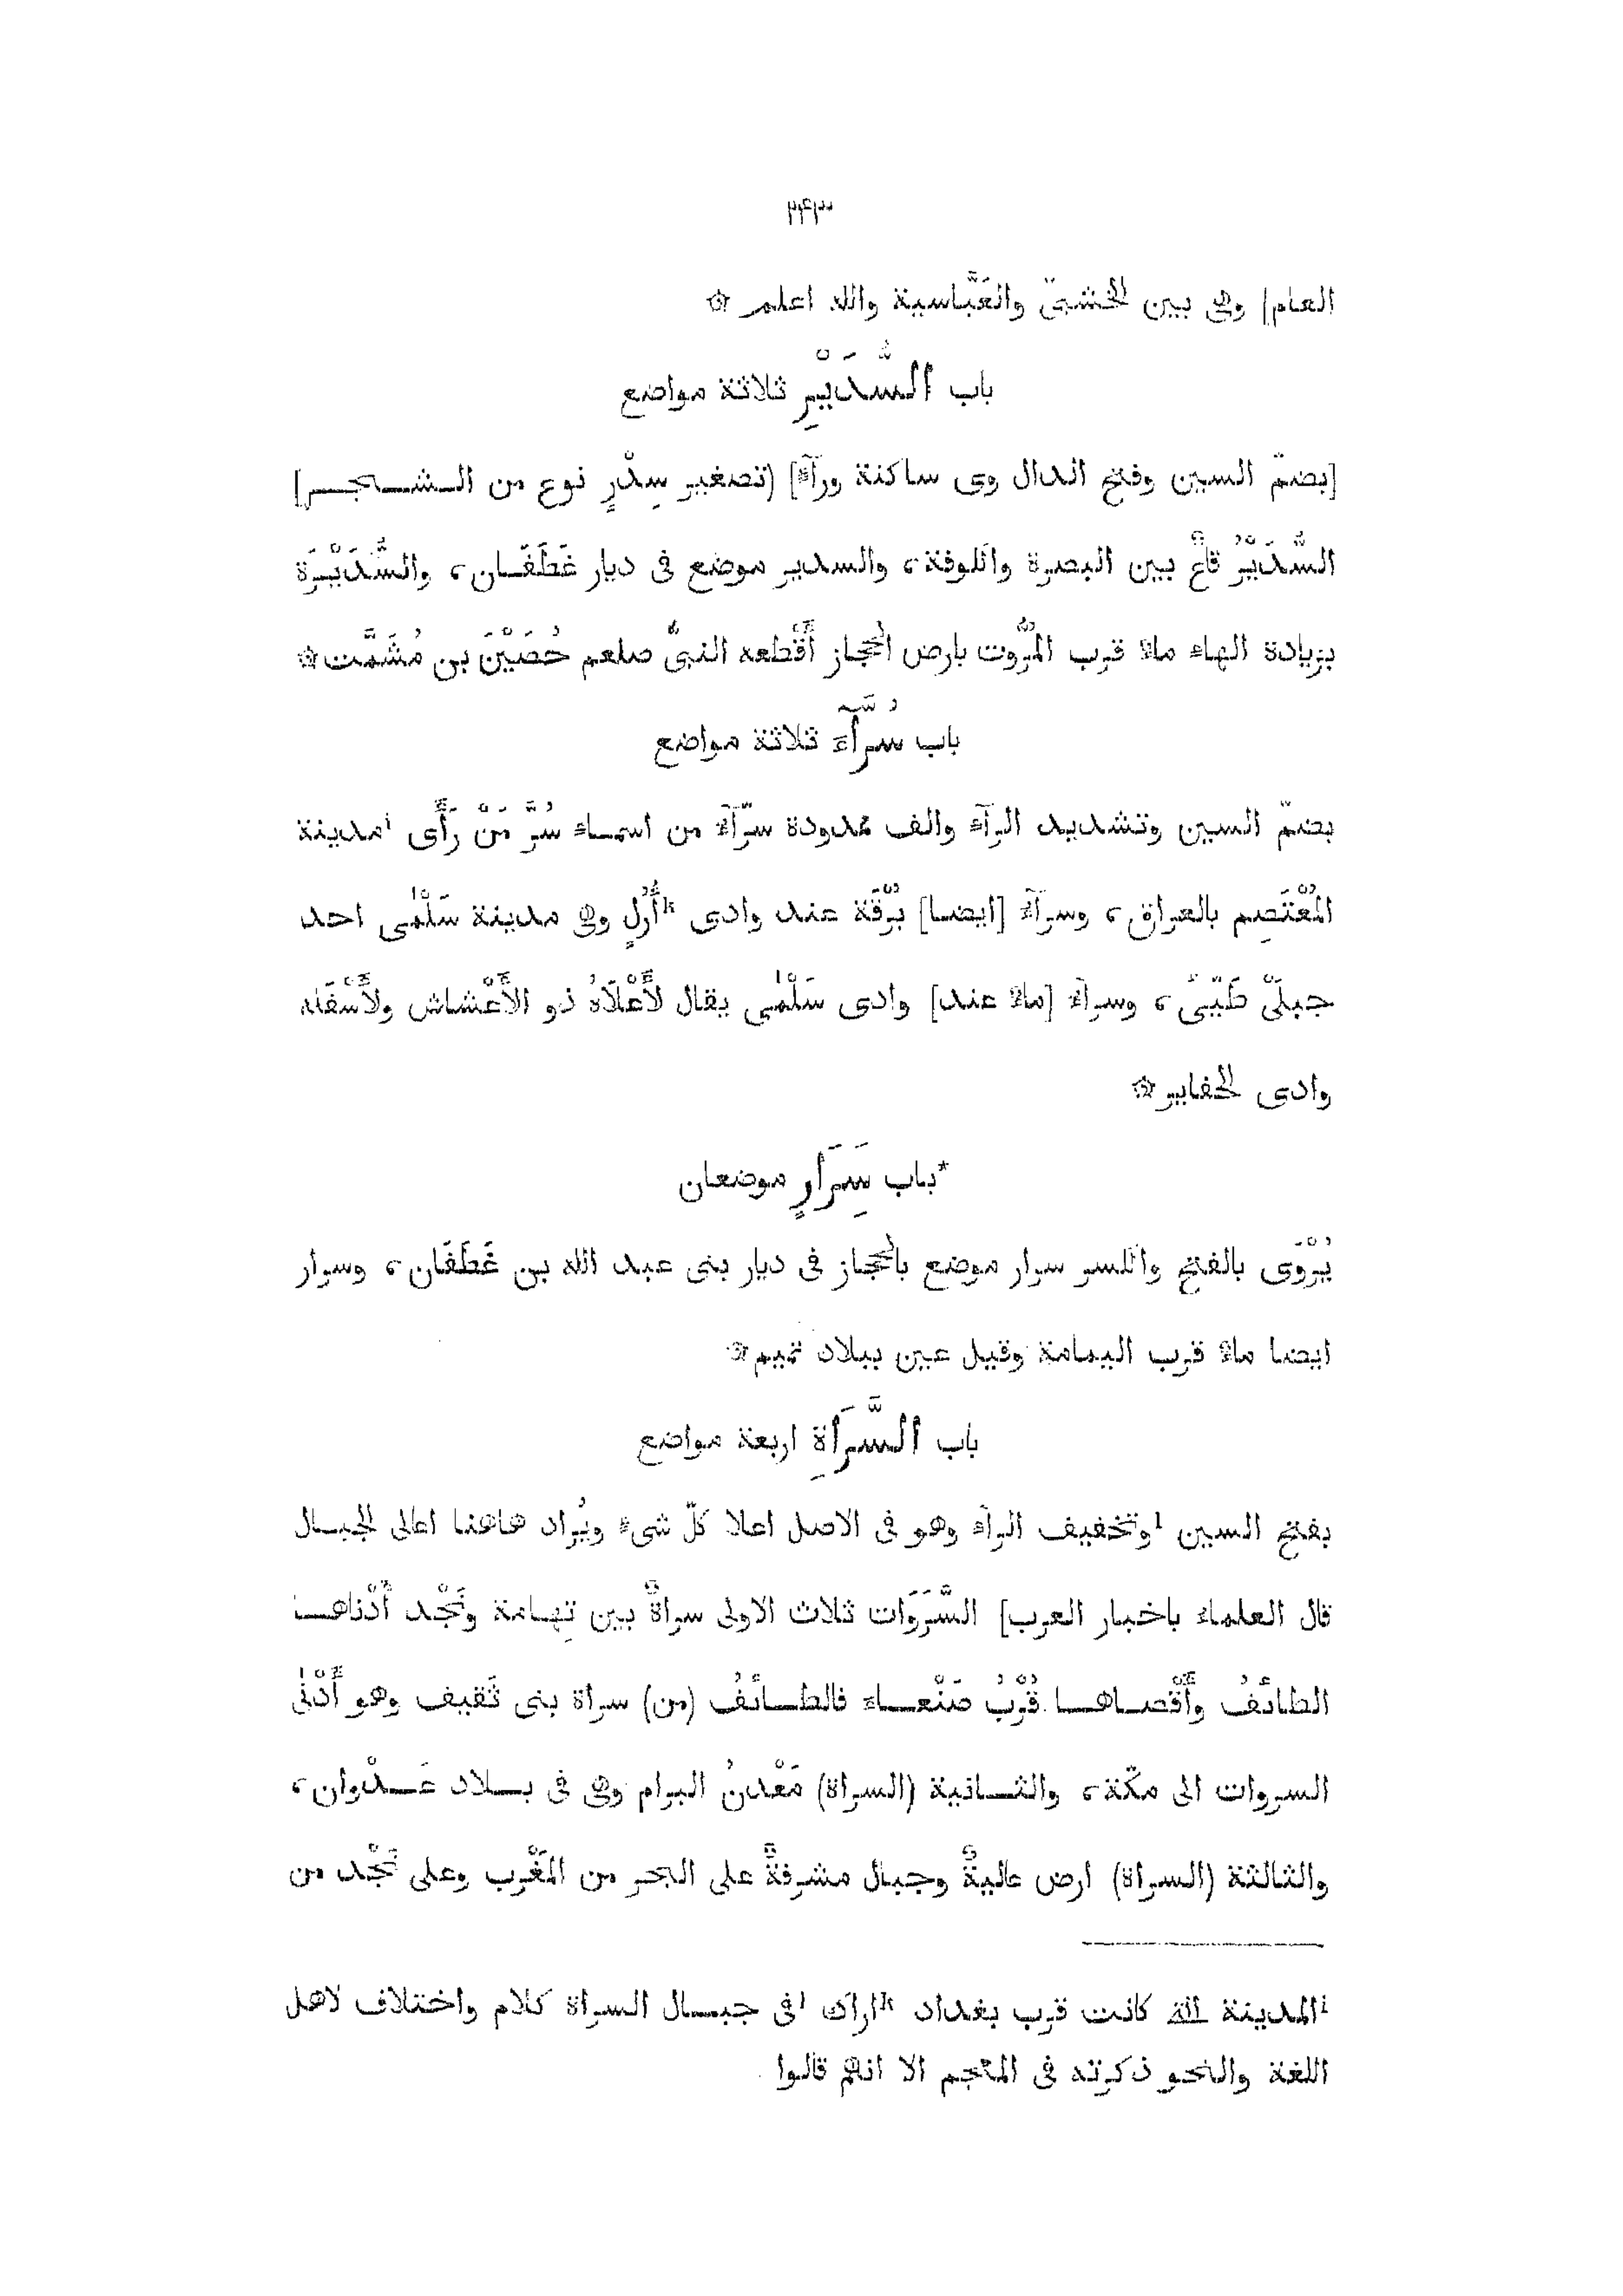 ٢٤٣
العام] وهى بين الخشبىّ والعَبَّاسية والله اعلم ۞
باب السُّدَيْرِ ثلاثة مواضع
[بضمّ السين وفتح الدال وى ساكنة ورآء] (تصغير سِدْرٍ نوع من الشجر]
السُّدَيْرُ قاعٌ بين البصرة والكوفة، والسدير موضع فى ديار غَطَفَان، والسُّدَيْرَة
بزيادة الهاء ماء قرب المَرُّوت بارض الحجاز أَقْطعه النبىُّ صلعم حُصَيْنَ بن مُشَمَّت ۞
باب سُرَّآءَ ثلاثة مواضع
بضمّ السين وتشديد الرآء والف ممدودة سرّآء من اسماء سُرَّ مَنْ رَأَى ⁱمدينة
المُعْتَصِم بالعراق، وسرآء [ايضا] بُرْقَة عند وادى ᵏأُرُلٍ وهى مدينة سَلْمٰى احد
جبلَىْ طَيّىً، وسرآء [ماء عند] وادى سَلْمٰى يقال لأَعْلَاهُ ذو الأَعْشاش ولأَسْفَله
وادى الحفاير ۞
*باب سَِرَارٍ موضعان
يُرْوَى بالفتح والكسر سرار موضع بالحجاز فى ديار بنى عبد الله بن غَطَفَان، وسرار
ايضا ماء قرب اليمامة وقيل عين ببلاد تميم ۞
باب السَّرَاةِ اربعة مواضع
بفتح السين ˡوتخفيف الرآء وهو فى الاصل اعلا كلّ شىء ويُراد هاهنا اعالى الجبال
قال العلماء باخبار العرب] السَّرَوَات ثلاث الاولى سراةٌ بين تِهامة ونَجْد أَدْناها
الطائفُ وأَقْصاها قُرْبُ صَنْعاء فالطائفُ (من) سراة بنى ثَقيف وهو أَدْنٰى
السروات الى مكّة، والثانية (السراة) مَعْدنُ البرام وهى فى بلاد عَدْوان،
والثالثة (السراة) ارض عاليةٌ وجبال مشرفةٌ على البحر من المَغْرب وعلى نَجْد من
ⁱالمدينة التى كانت قرب بغداد ᵏاراك ˡفى جبال السراة كلام واختلاف لاهل
اللغة والنحو ذكرته فى المعجم الا انهم قالوا